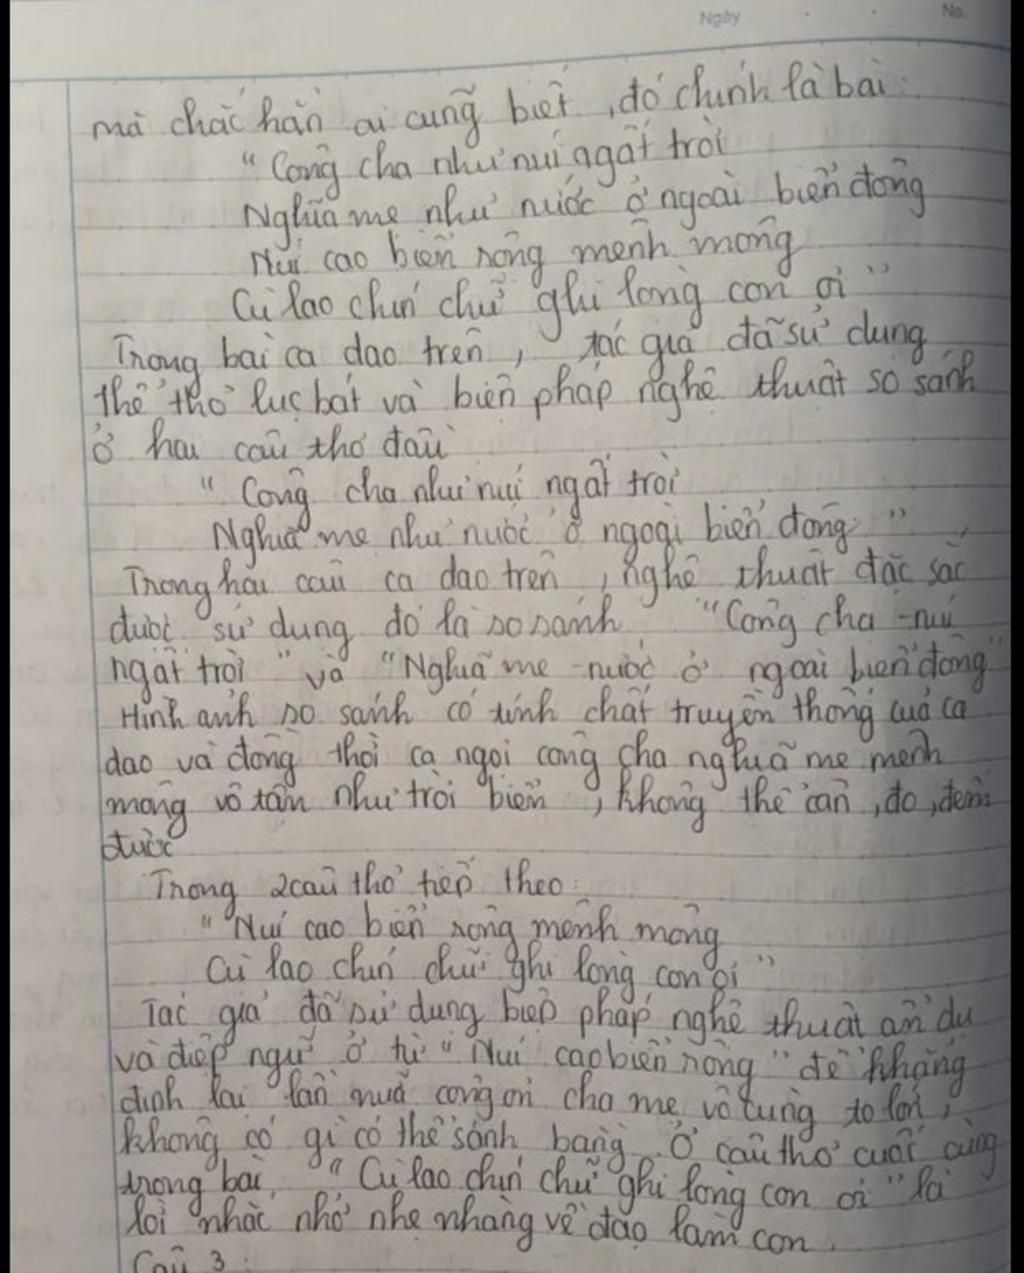 Ngày No.
mà chắc hẳn ai cũng biết, đó chính là bài:
"Công cha như núi ngất trời
Nghĩa mẹ như nước ở ngoài biển đông
Núi cao biển rộng mênh mông
Cù lao chín chữ ghi lòng con ơi"
Trong bài ca dao trên, tác giả đã sử dụng
thể thơ lục bát và biện pháp nghệ thuật so sánh
ở hai câu thơ đầu
"Công cha như núi ngất trời
Nghĩa mẹ như nước ở ngoài biển đông"
Trong hai câu ca dao trên, nghệ thuật đặc sắc
được sử dụng đó là so sánh "Công cha - núi
ngất trời" và "Nghĩa mẹ - nước ở ngoài biển đông"
Hình ảnh so sánh có tính chất truyền thống của ca
dao và đồng thời ca ngợi công cha nghĩa mẹ mênh
mông vô tận như trời biển, không thể cân, đo, đếm
được
Trong 2 câu thơ tiếp theo:
"Núi cao biển rộng mênh mông
Cù lao chín chữ ghi lòng con ơi"
Tác giả đã sử dụng biện pháp nghệ thuật ẩn dụ
và điệp ngữ ở từ "Núi cao biển rộng" để khẳng
định lại lần nữa công ơn cha mẹ vô cùng to lớn,
không có gì có thể sánh bằng. Ở câu thơ cuối cùng
trong bài, "Cù lao chín chữ ghi lòng con ơi" là
lời nhắc nhở nhẹ nhàng về đạo làm con.
Câu 3: